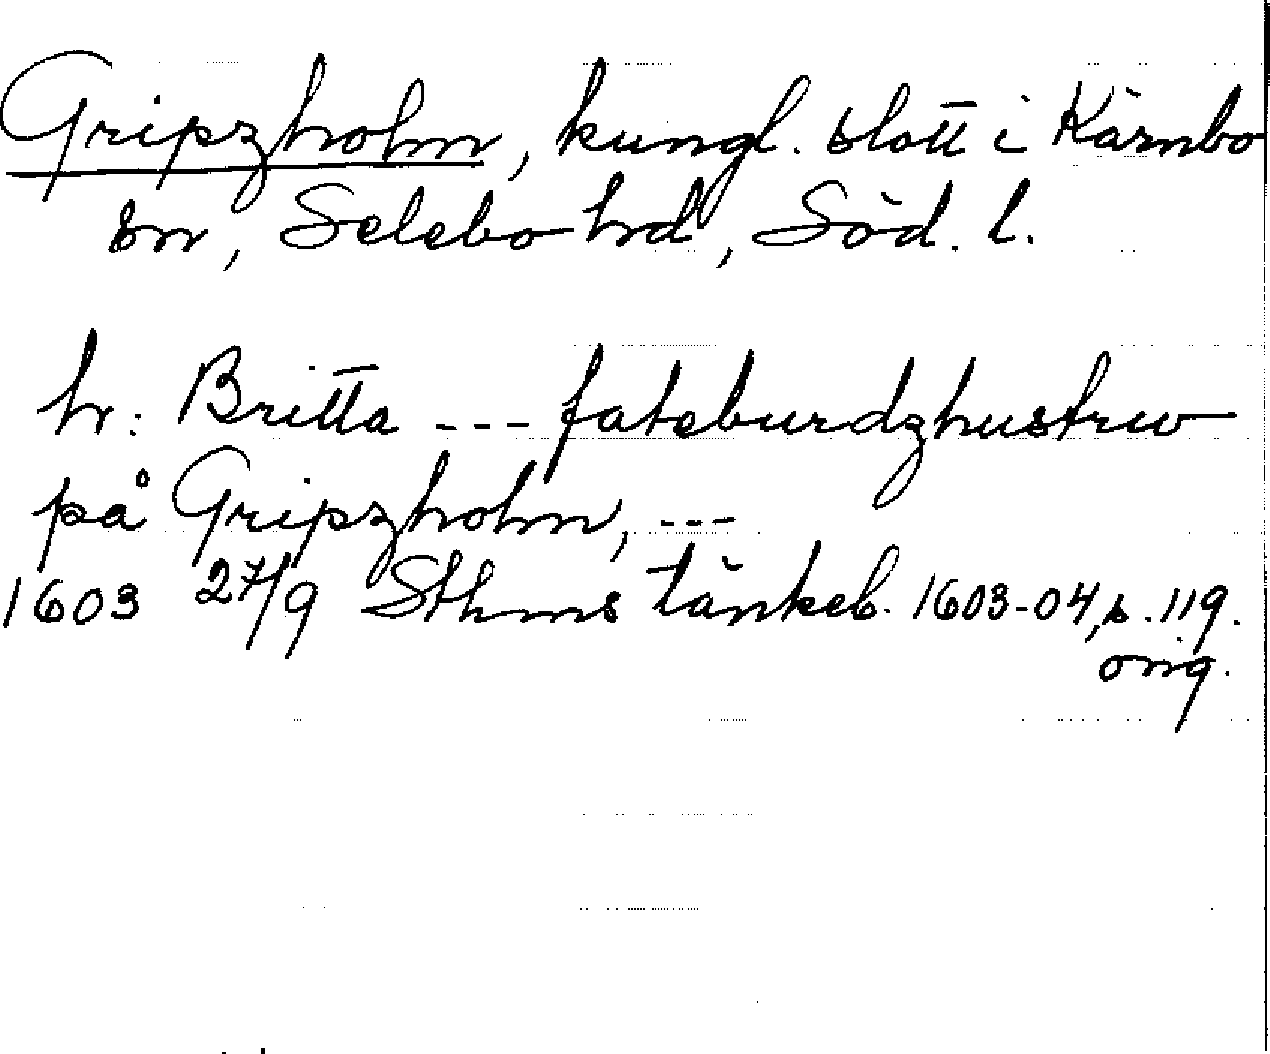 Gripzholm, kungl. slott i Kärnbo
sn, Selebo hrd, Söd. l.
hr: Britta --- fateburdzhustrw
på Gripzholm, ---
1603 27/9 Sthms tänkeb. 1603-04, s. 119.
orig.